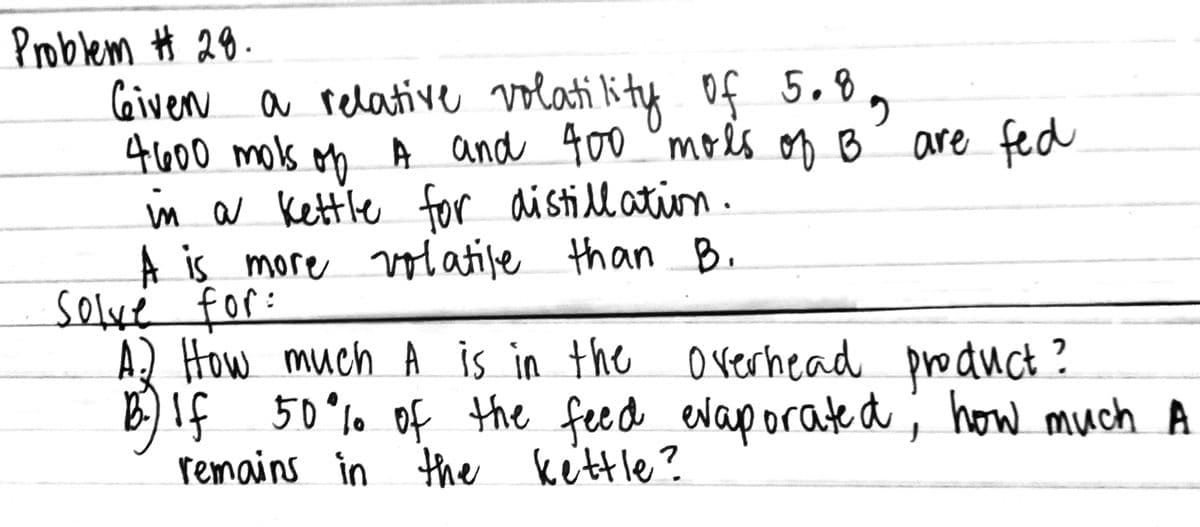 Problem # 28.
Given a relative volatility of 5.8,
4600 mols of A and 400 mols of B are fed
in a kettle for distillation.
A is more volatile than B.
Solve for:
A.) How much A is in the overhead product?
B.) If 50% of the feed evaporated, how much A
remains in the kettle?